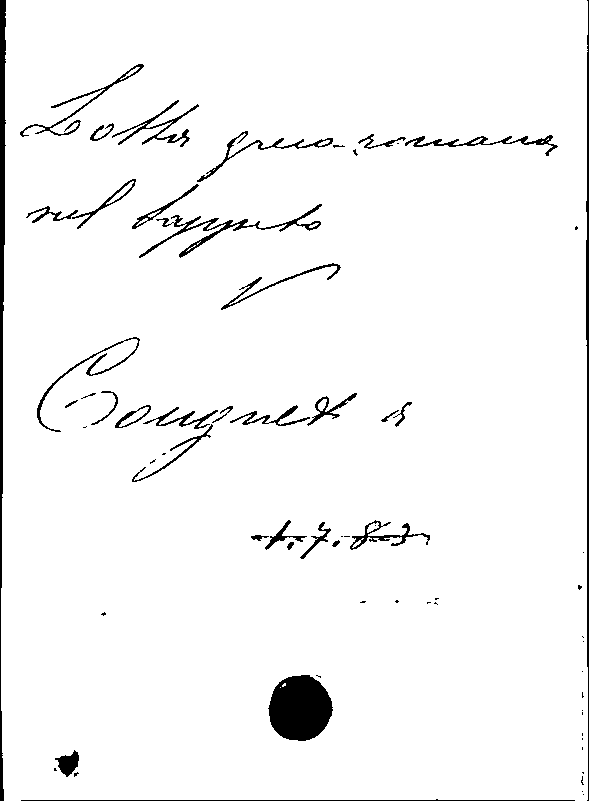 Lotta greco-romana
sul tappeto
V
Cougnet A
1.7.83